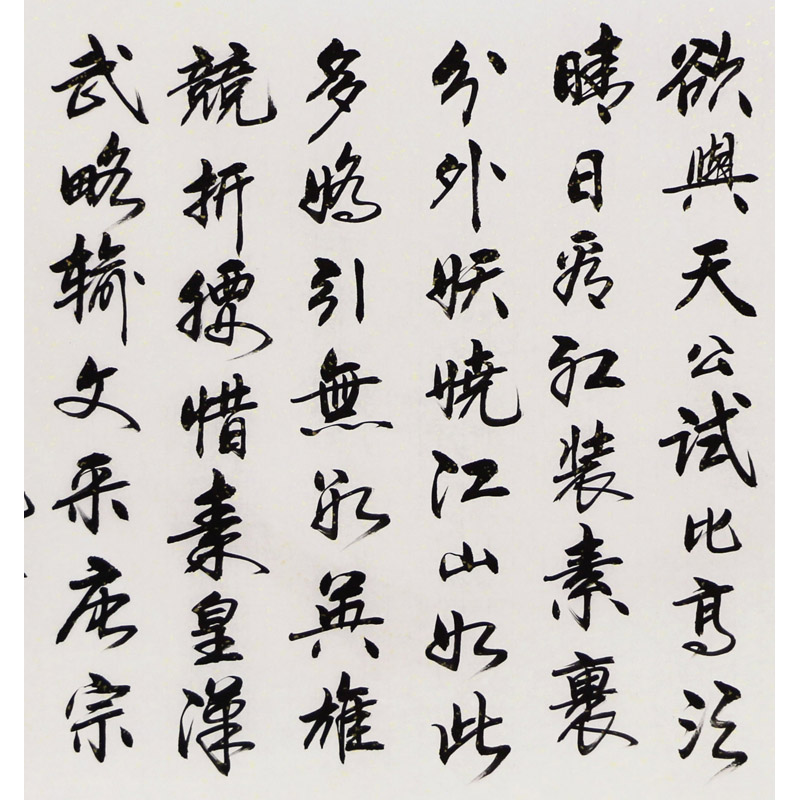 欲與天公試比高須
晴日看紅裝素裹
分外妖嬈江山如此
多嬌引無數英雄
競折腰惜秦皇漢
武略輸文采唐宗